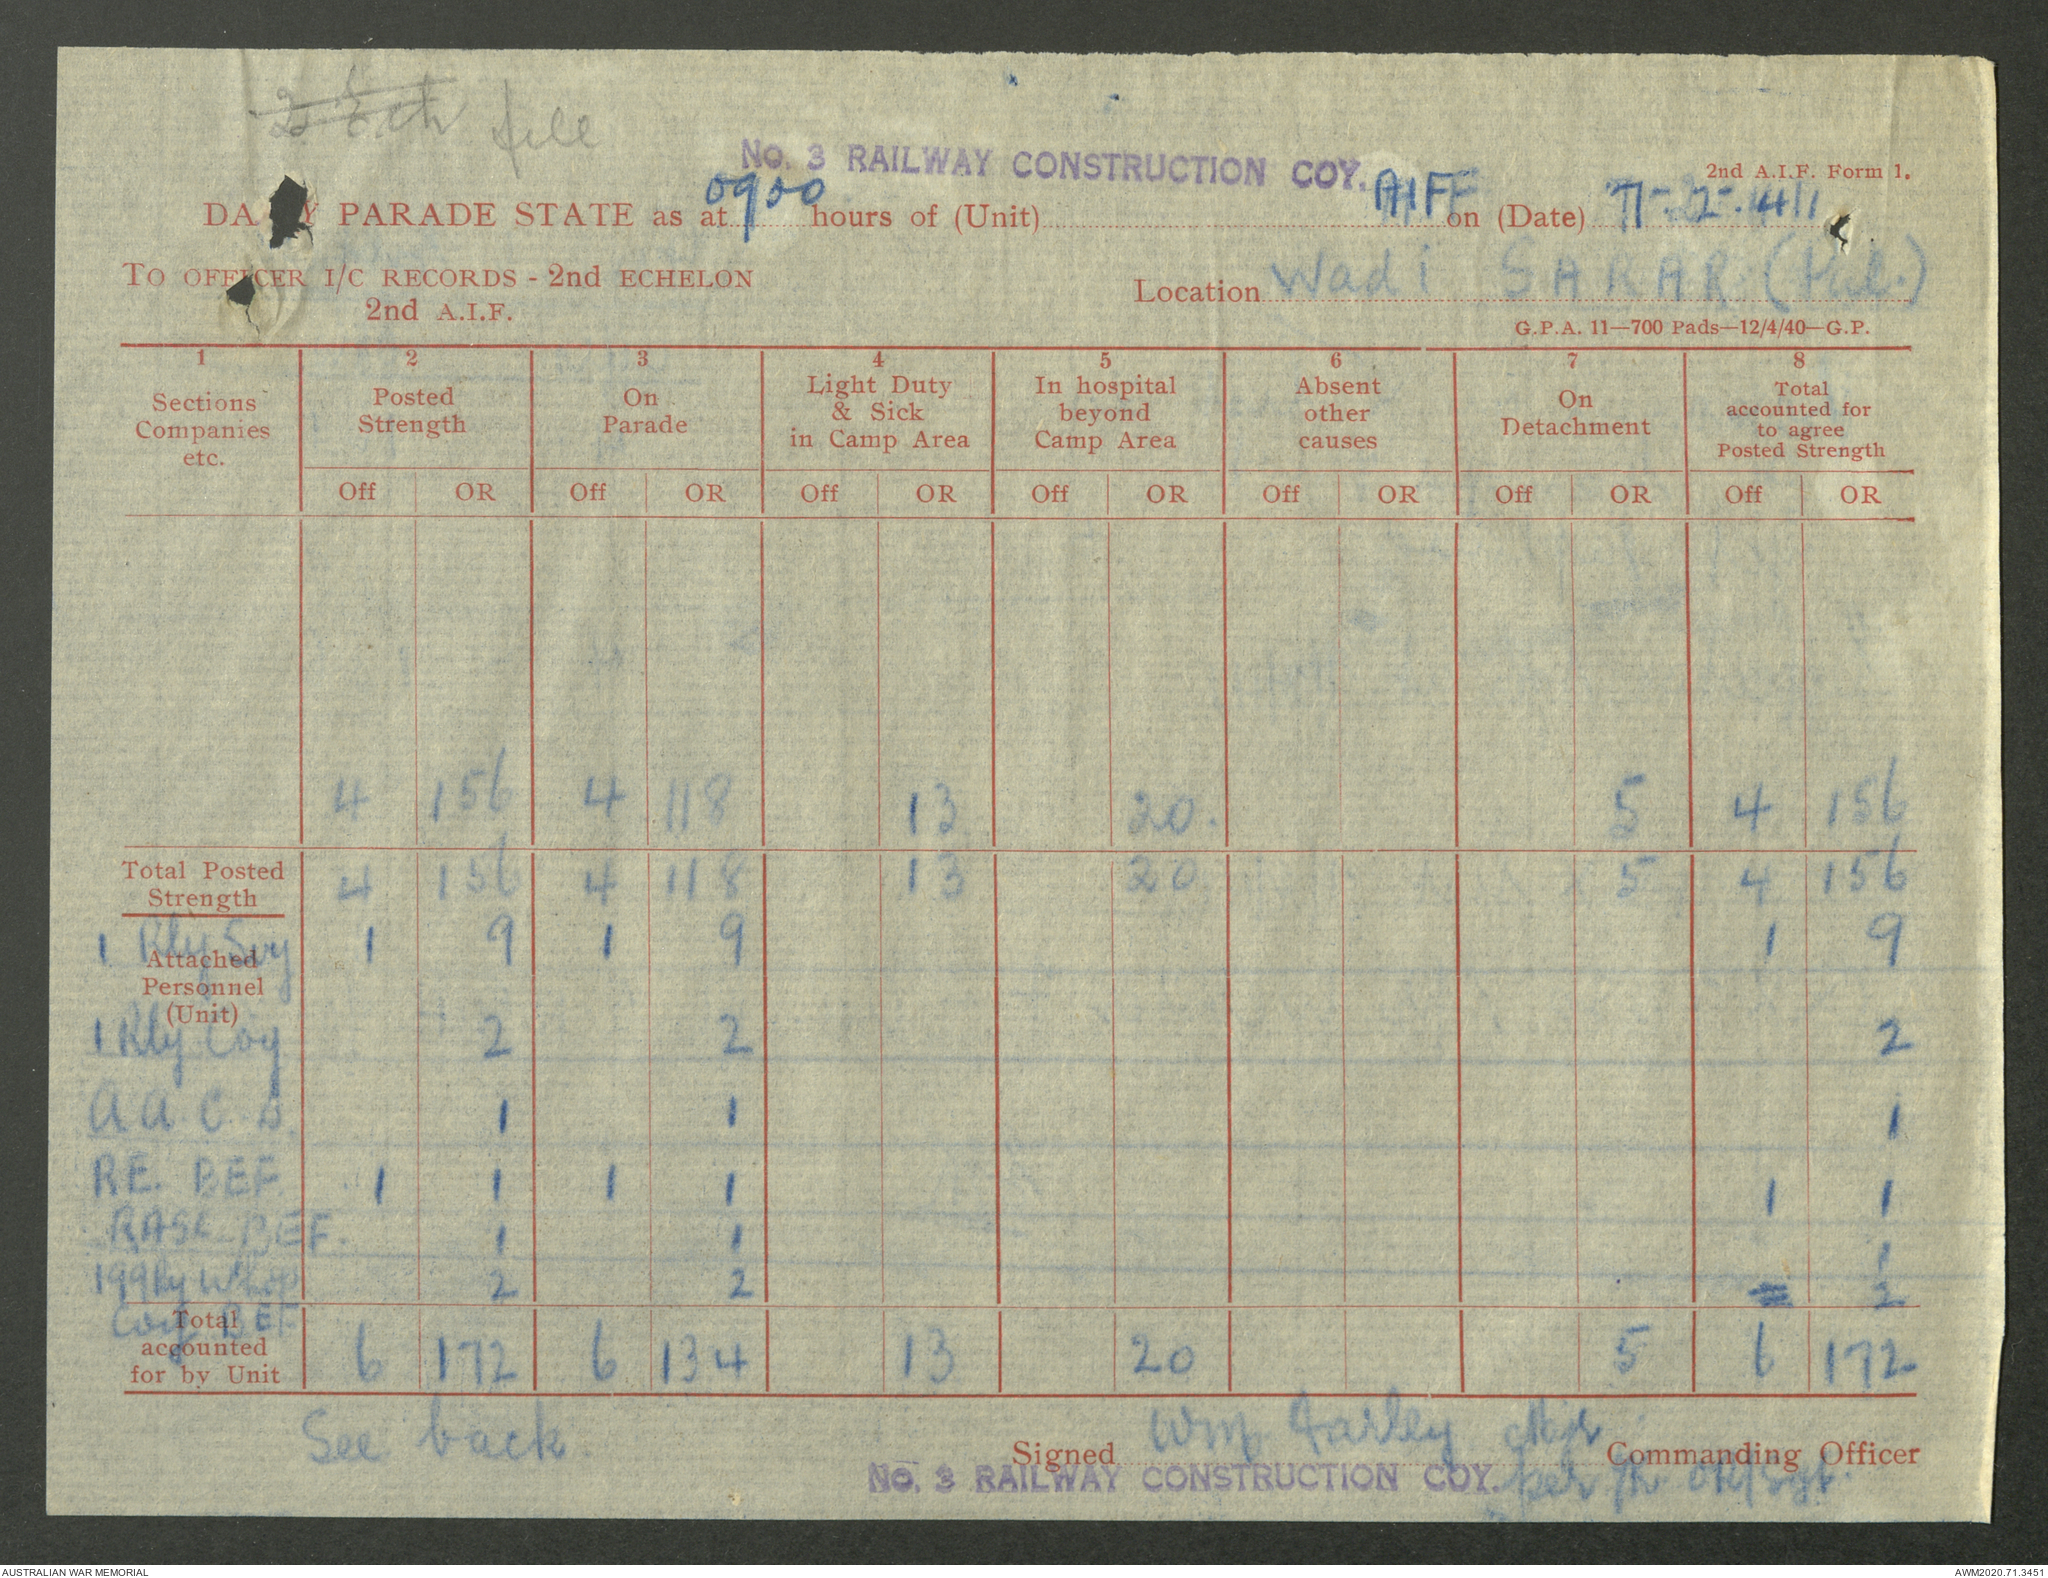 2 Ech file
No. 3 RAILWAY CONSTRUCTION COY. AIF
2nd A.I.F. Form 1.
DA Y PARADE STATE as at 0900 hours of (Unit) on (Date) 7-2-41
TO OFFICER I/C RECORDS - 2nd ECHELON
2nd A.I.F.
Location Wadi SARAR (Pal.)
G.P.A. 11—700 Pads—12/4/40—G.P.
1 2 3 4 5 6 7 8
Sections Companies etc. Posted Strength On Parade Light Duty & Sick in Camp Area In hospital beyond Camp Area Absent other causes On Detachment Total accounted for to agree Posted Strength
Off OR Off OR Off OR Off OR Off OR Off OR Off OR
4 156 4 118 13 20. 5 4 156
Total Posted Strength 4 156 4 118 13 20 5 4 156
Attached Personnel (Unit)
1 Rly Svy 1 9 1 9 1 9
1 Rly Coy 2 2 2
A A C D 1 1 1
RE. BEF 1 1 1 1 1 1
RASC BEF. 1 1 1
199 Ry W'shop Coy BEF 2 2 2
Total accounted for by Unit 6 172 6 134 13 20 5 6 172
See back
Signed Wm Farley Commanding Officer
No. 3 RAILWAY CONSTRUCTION COY.
per
AUSTRALIAN WAR MEMORIAL
AWM2020.71.3451